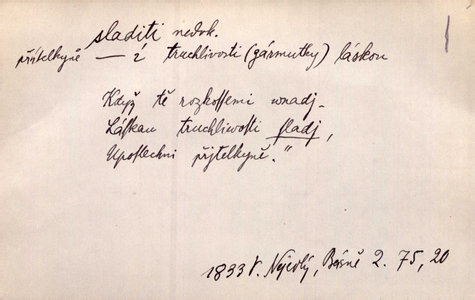 sladiti nedok.
přítelkyně — í truchlivosti (zármutky) láskou
Když tě rozkossemi wnadj
Láskau truchliwosti sladj,
Uposlechni přjtelkyně."
1833 V. Nejedlý, Básně 2. 75, 20